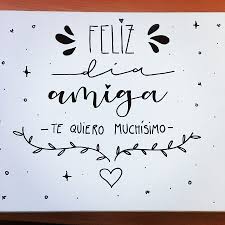 FELIZ
dia
amiga
- TE QUIERO MUCHÍSIMO -